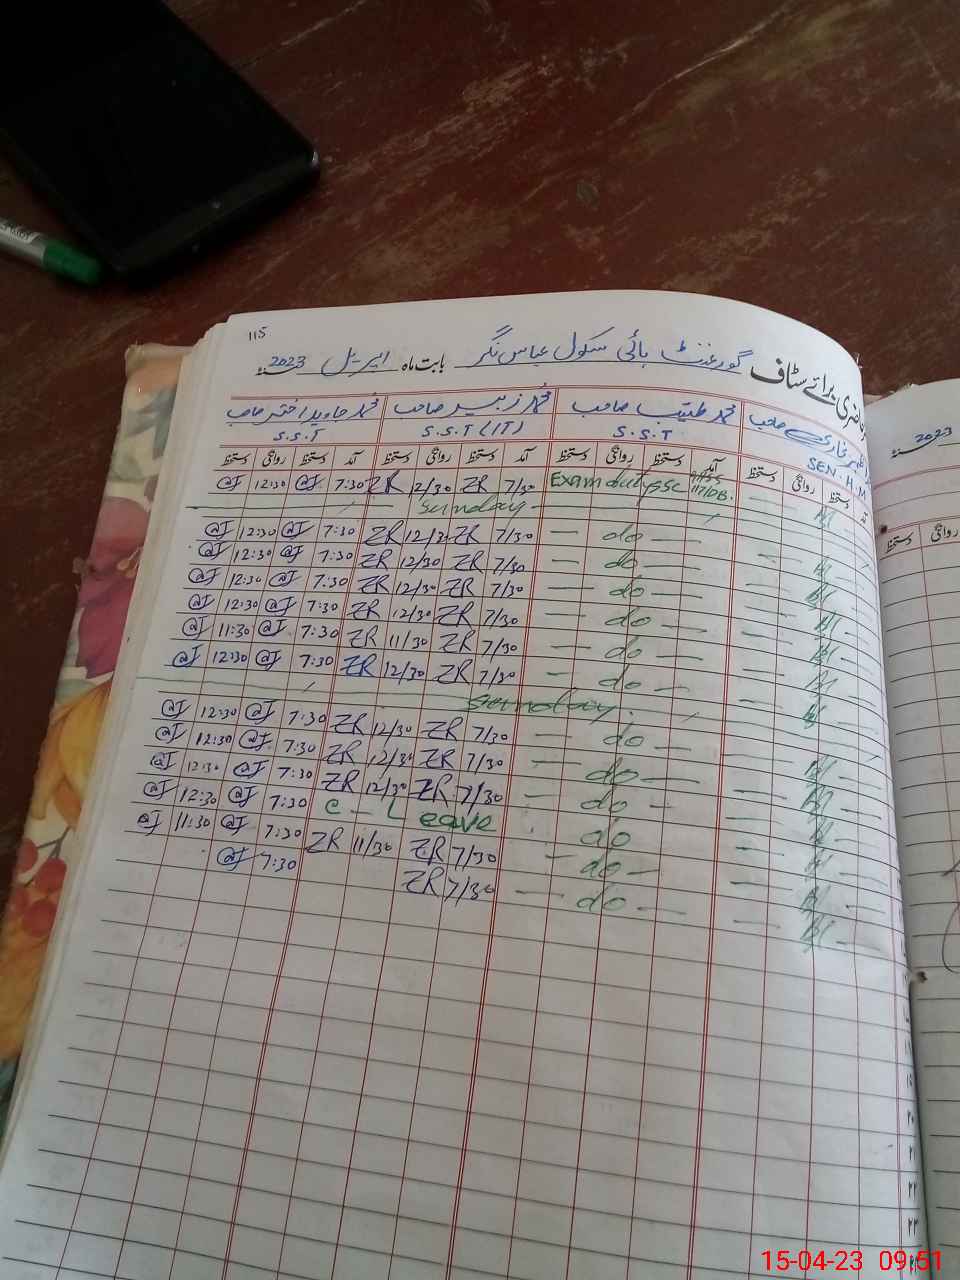 115
حاضری برائے سٹاف گورنمنٹ ہائی سکول عباس نگر بابت ماہ اپریل 2023ء
محمد طیب صاحب محمد زبیر صاحب محمد جاوید اختر صاحب
SEN. H.M S.S.T S.S.T (IT) S.S.T
آمد دستخط روانگی دستخط آمد دستخط روانگی دستخط آمد دستخط روانگی دستخط آمد دستخط روانگی دستخط
@J 12:30 @J 7:30 ZR 12/30 ZR 7/30 Exam duty SSC
Sunday
@J 12:30 @J 7:30 ZR 12/30 ZR 7/30 — do —
@J 12:30 @J 7:30 ZR 12/30 ZR 7/30 — do —
@J 12:30 @J 7:30 ZR 12/30 ZR 7/30 — do —
@J 12:30 @J 7:30 ZR 12/30 ZR 7/30 — do —
@J 11:30 @J 7:30 ZR 11/30 ZR 7/30 — do —
@J 12:30 @J 7:30 ZR 12/30 ZR 7/30 — do —
Sunday
@J 12:30 @J 7:30 ZR 12/30 ZR 7/30 — do —
@J 12:30 @J 7:30 ZR 12/30 ZR 7/30 — do —
@J 12:30 @J 7:30 ZR 12/30 ZR 7/30 — do —
@J 12:30 @J 7:30 C - Leave do
@J 11:30 @J 7:30 ZR 11/30 ZR 7/30 — do —
@J 7:30 ZR 7/30 — do —
2023ء
دستخط روانگی
15-04-23 09:51